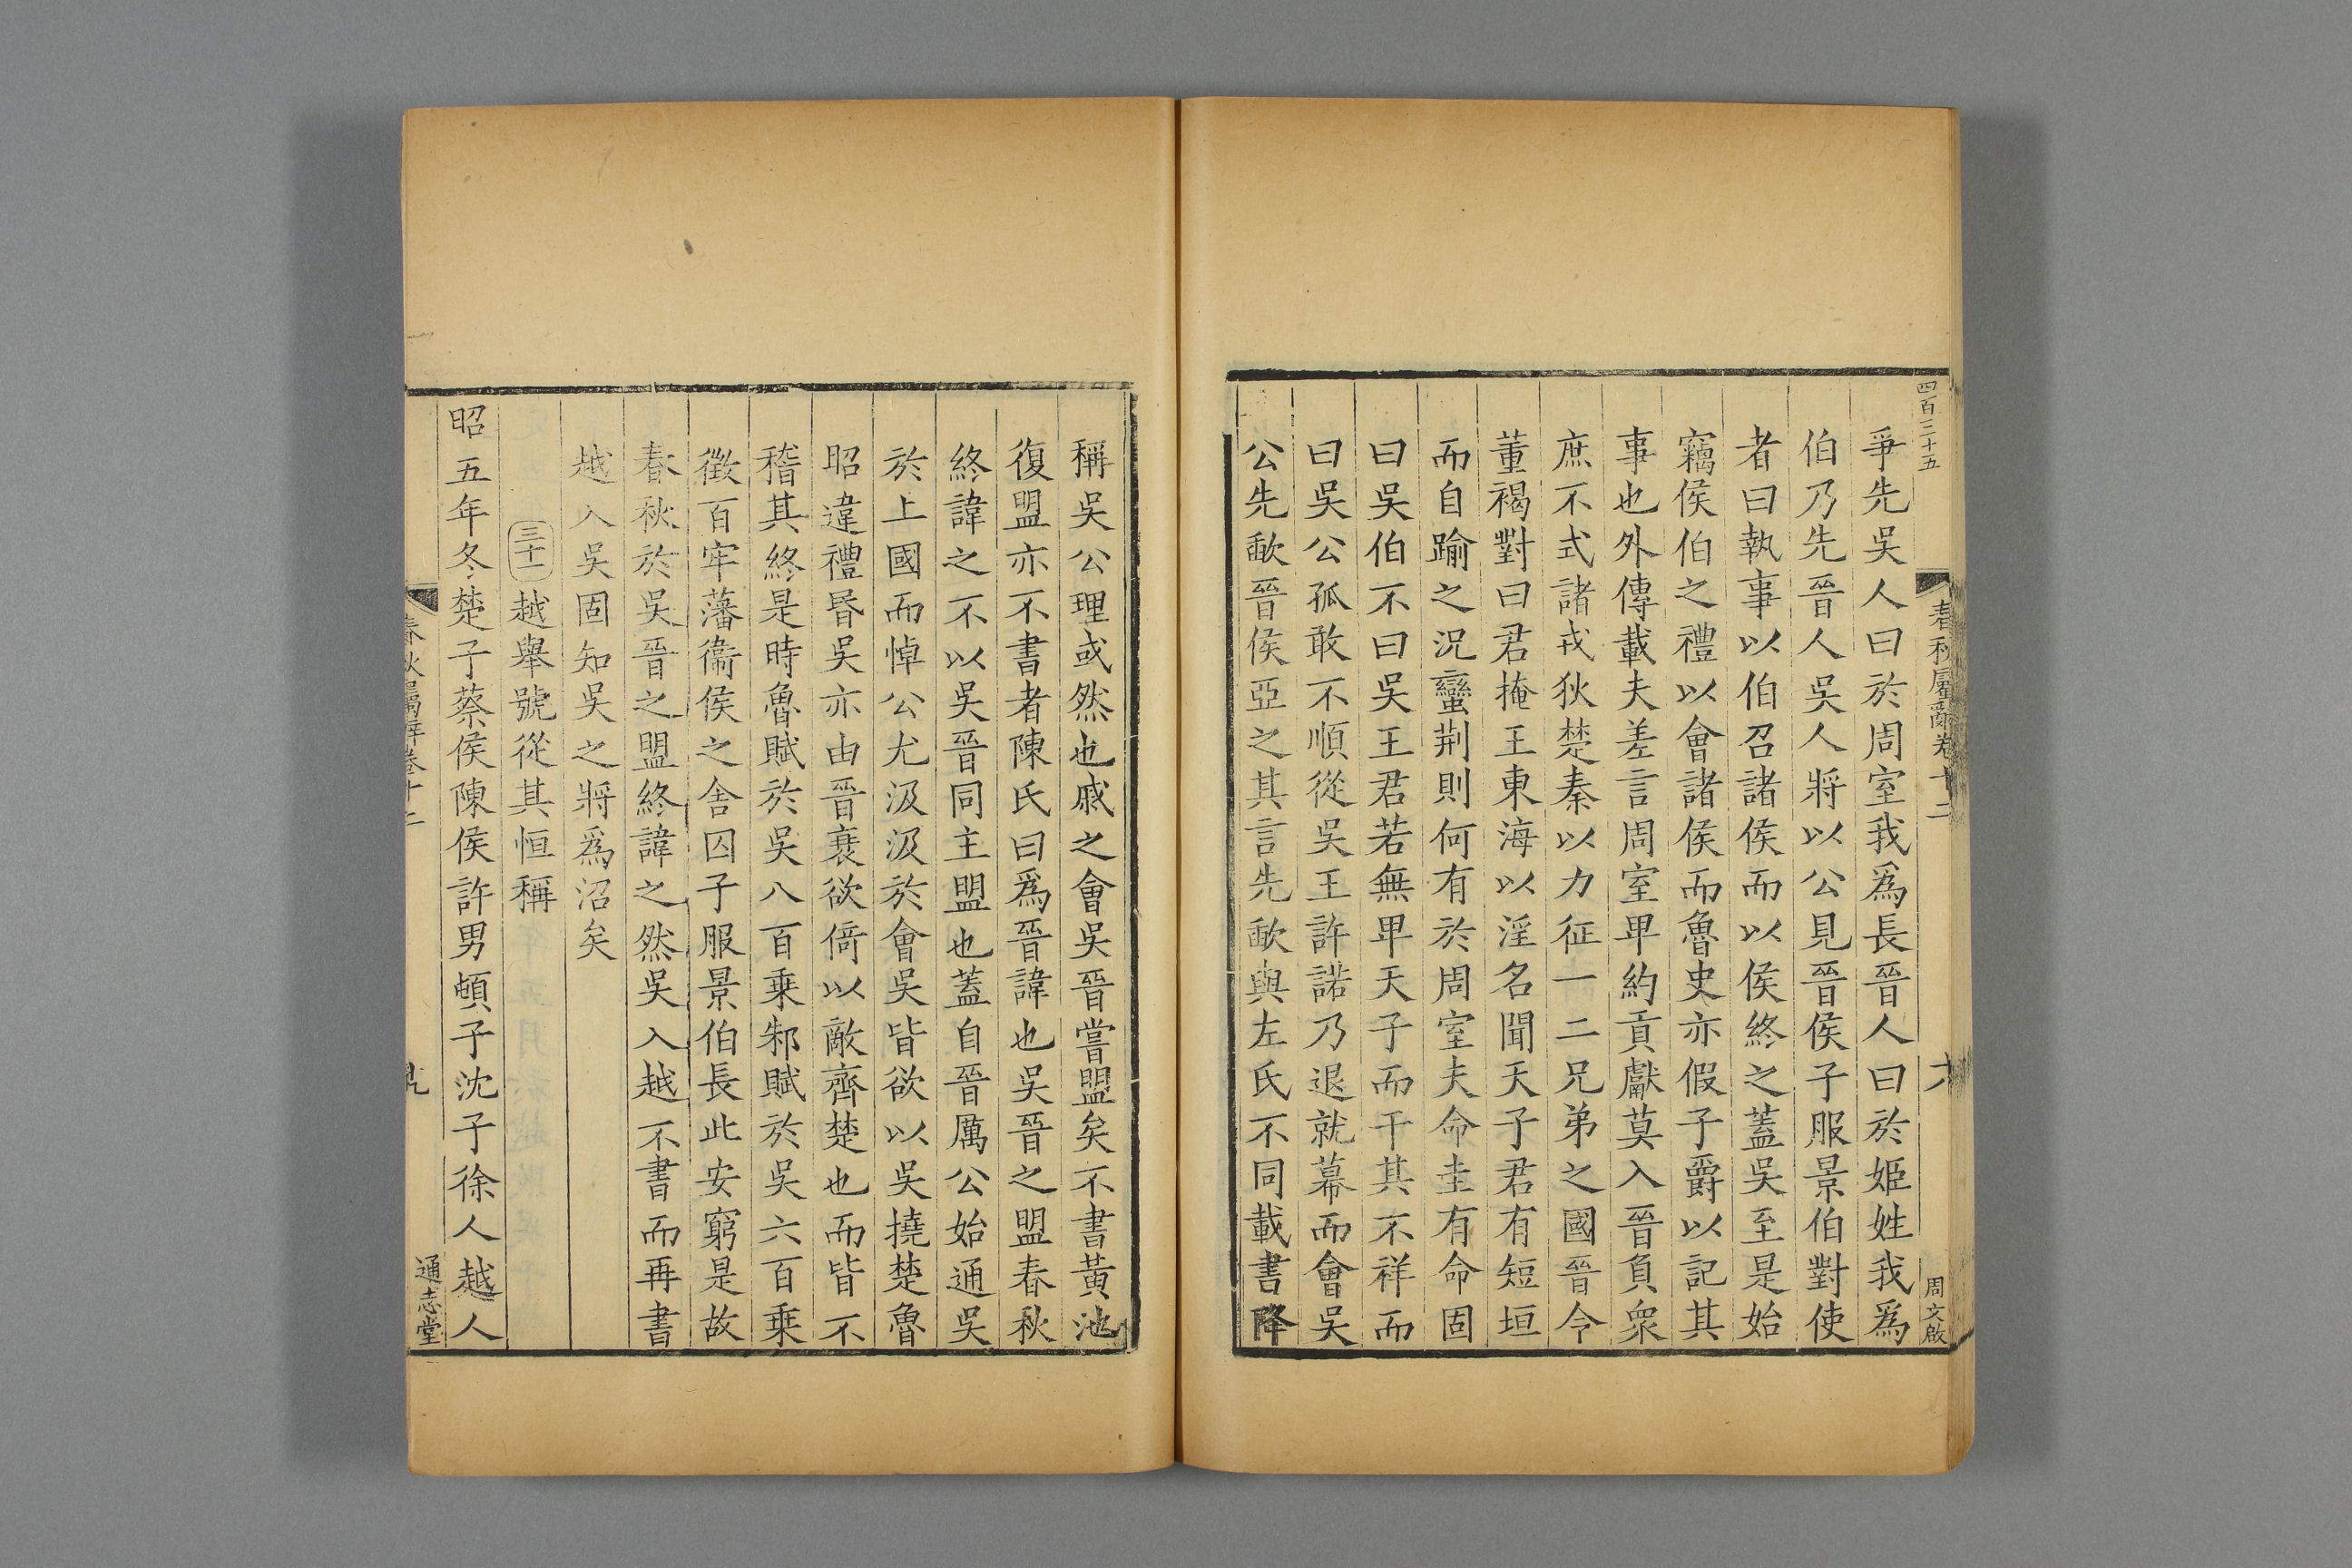 四百三十五
春秋屬辭卷十二
六
周文啟
爭先吳人曰於周室我爲長晉人曰於姬姓我爲
伯乃先晉人吳人將以公見晉侯子服景伯對使
者曰執事以伯召諸侯而以侯終之蓋吳至是始
竊侯伯之禮以會諸侯而魯史亦假子爵以記其
事也外傳載夫差言周室卑約貢獻莫入晉負衆
庶不式諸戎狄楚秦以力征一二兄弟之國晉令
董褐對曰君掩王東海以淫名聞天子君有短垣
而自踰之況蠻荆則何有於周室夫命圭有命固
曰吳伯不曰吳王君若無卑天子而干其不祥而
曰吳公孤敢不順從吳王許諾乃退就幕而會吳
公先歃晉侯亞之其言先歃與左氏不同載書降
稱吳公理或然也戚之會吳晉嘗盟矣不書黃池
復盟亦不書者陳氏曰爲晉諱也吳晉之盟春秋
終諱之不以吳晉同主盟也蓋自晉厲公始通吳
於上國而悼公尤汲汲於會吳皆欲以吳撓楚魯
昭違禮昏吳亦由晉衰欲倚以敵齊楚也而皆不
稽其終是時魯賦於吳八百乗邾賦於吳六百乗
徵百牢藩衞侯之舍囚子服景伯長此安窮是故
春秋於吳晉之盟終諱之然吳入越不書而再書
越入吳固知吳之將爲沼矣
三十一越舉號從其恒稱
昭五年冬楚子蔡侯陳侯許男頓子沈子徐人越人
春秋屬辭卷十二
九
通志堂